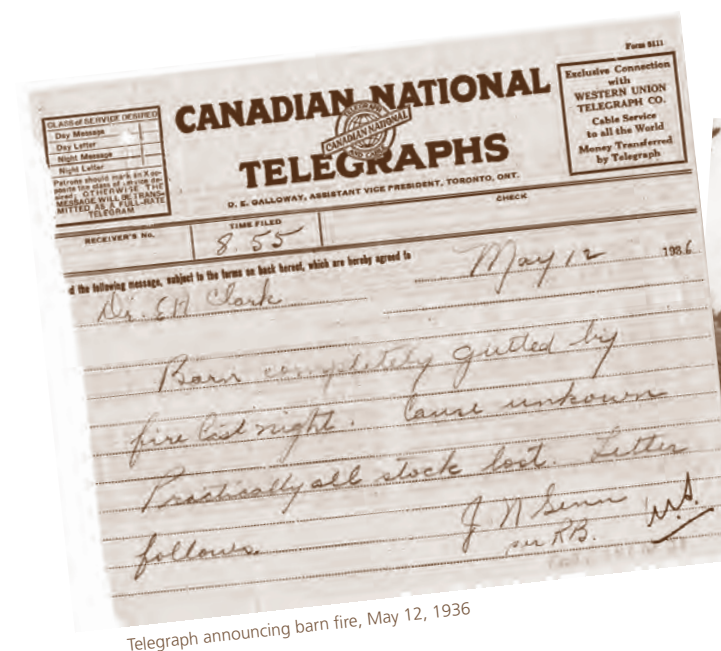 Form 6111
CLASS of SERVICE DESIRED
Day Message
Day Letter
Night Message
Night Letter
Patrons should mark an X op-
posite the class of service de-
sired. OTHERWISE THE
MESSAGE WILL BE TRANS-
MITTED AS A FULL-RATE
TELEGRAM
CANADIAN NATIONAL
TELEGRAPHS
CANADIAN NATIONAL
TELEGRAPHS
D. E. GALLOWAY, ASSISTANT VICE PRESIDENT, TORONTO, ONT.
Exclusive Connection
with
WESTERN UNION
TELEGRAPH CO.
Cable Service
to all the World
Money Transferred
by Telegraph
RECEIVER'S No.
TIME FILED
8.55
CHECK
d the following message, subject to the terms on back hereof, which are hereby agreed to
May 12 1936
Dr. E A Clark
Barn completely gutted by
fire last night. Cause unkown
Practically all stock lost. Letter
follows.
J N
per RB.
Telegraph announcing barn fire, May 12, 1936